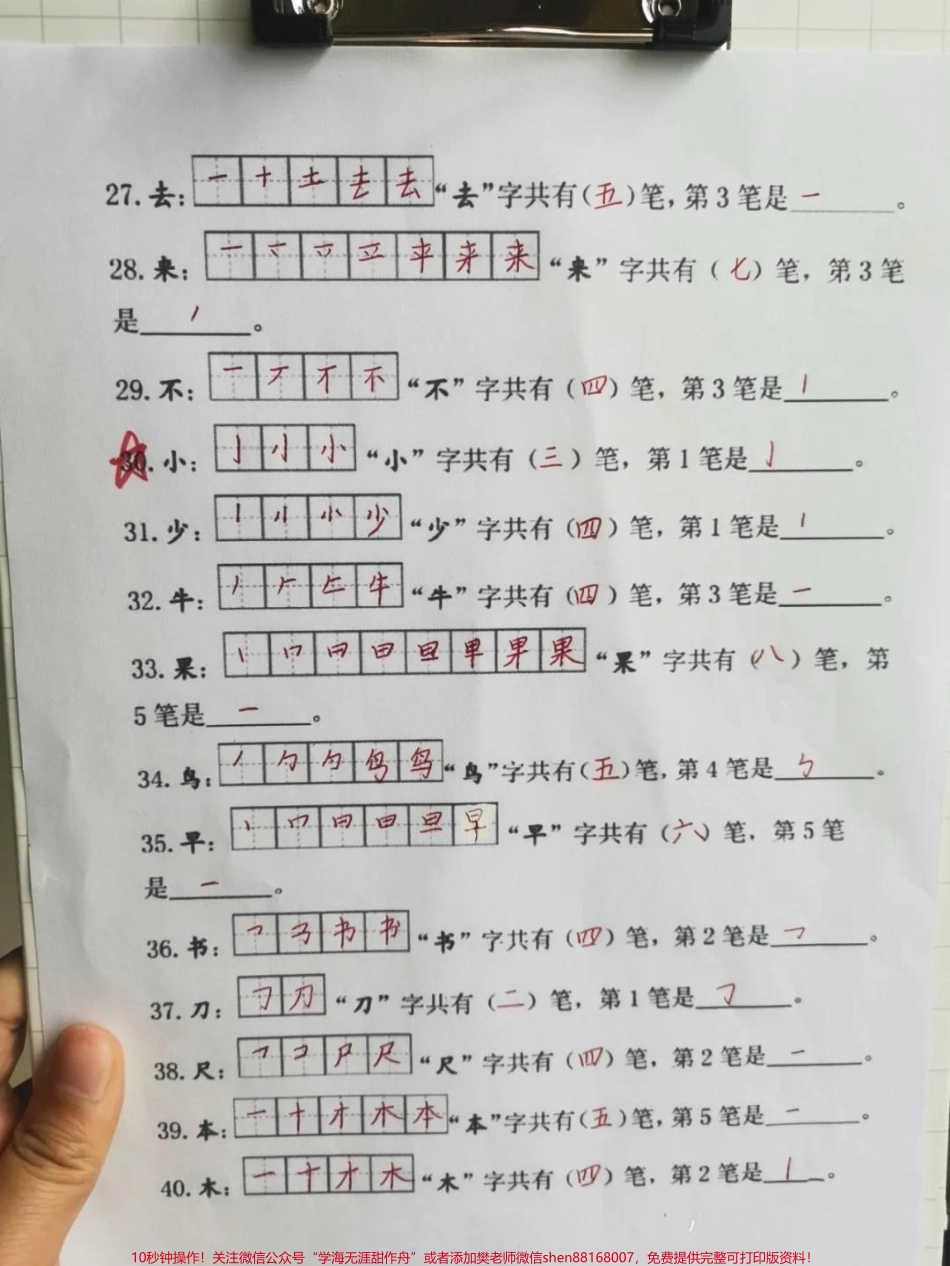 27.去：一 十 土 去 去 “去”字共有（五）笔，第3笔是 一 。
28.来： 来 “来”字共有（七）笔，第3笔
是 丿 。
29.不：一 不 “不”字共有（四）笔，第3笔是丨 。
30.小：亅 小 “小”字共有（三）笔，第1笔是 亅 。
31.少：丨 小 少 “少”字共有（四）笔，第1笔是 丨 。
32.牛：丿 𠂉 牛 “牛”字共有（四）笔，第3笔是 一 。
33.果：丨 冂 日 田 旦 甲 果 果 “果”字共有（八）笔，第
5笔是 一 。
34.鸟：丿 勹 鸟 “鸟”字共有（五）笔，第4笔是 ㄣ 。
35.早：丨 冂 日 日 旦 早 “早”字共有（六）笔，第5笔
是 一 。
36.书：㇕ 书 书 “书”字共有（四）笔，第2笔是 ㇕ 。
37.刀：㇆ 刀 “刀”字共有（二）笔，第1笔是 ㇆ 。
38.尺：㇕ コ 尸 尺 “尺”字共有（四）笔，第2笔是 一 。
39.本：一 十 才 木 本 “本”字共有（五）笔，第5笔是 一 。
40.木：一 十 才 木 “木”字共有（四）笔，第2笔是 丨 。
10秒钟操作！关注微信公众号“学海无涯甜作舟”或者添加樊老师微信shen88168007，免费提供完整可打印版资料！